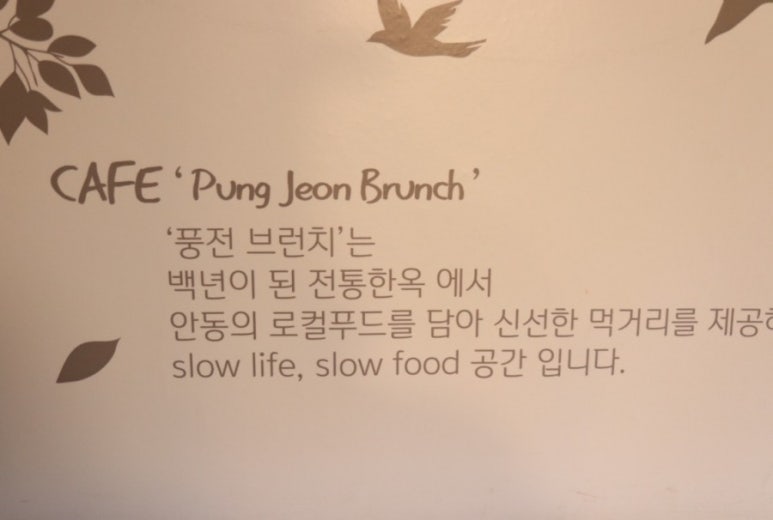 CAFE ‘Pung Jeon Brunch’
‘풍전 브런치’는
백년이 된 전통한옥 에서
안동의 로컬푸드를 담아 신선한 먹거리를 제공
slow life, slow food 공간 입니다.